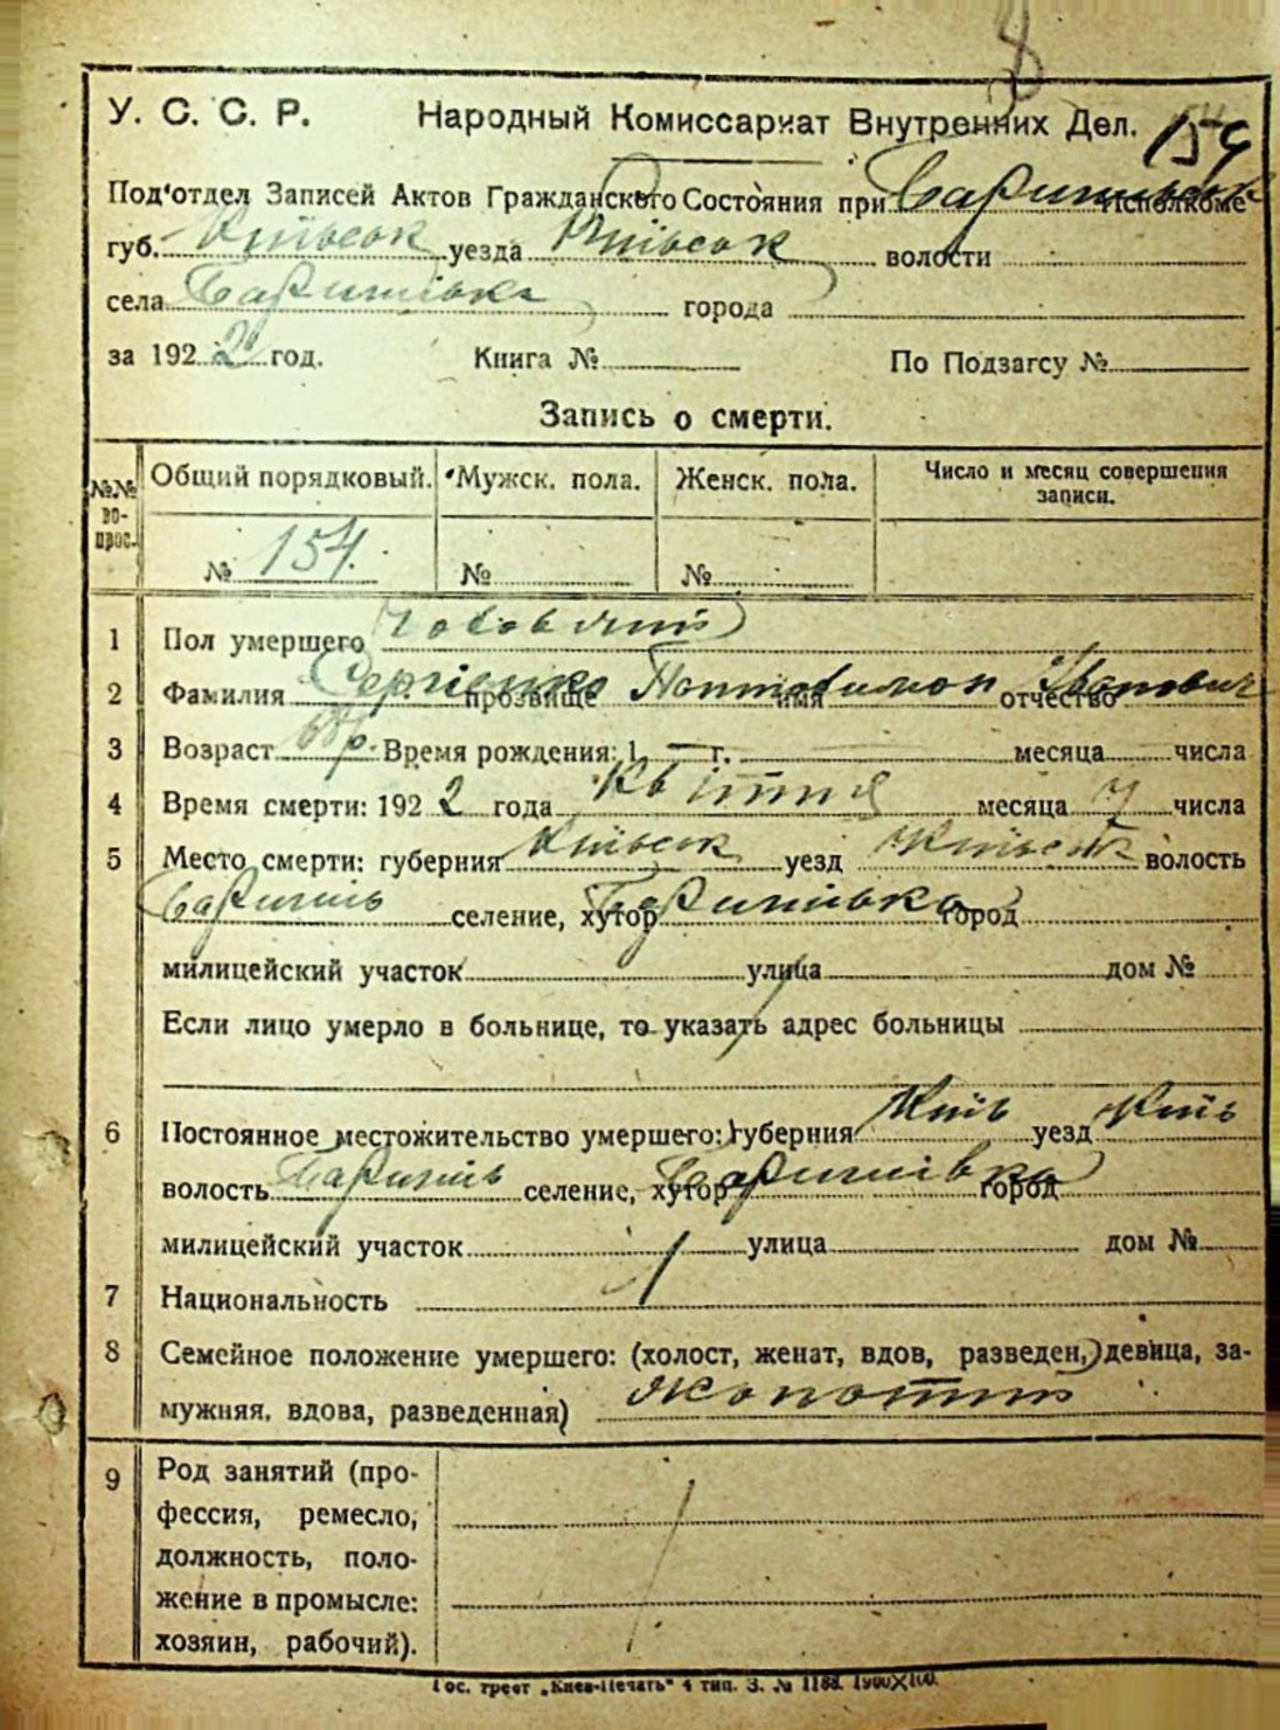 8
У. С. С. Р. Народный Комиссариат Внутренних Дел. 154
Под'отдел Записей Актов Гражданского Состояния при Баришівськ Исполкоме
губ. Київськ уезда Київськ волости
села Баришівка города
за 1922 год. Книга № По Подзагсу №
Запись о смерти.
№№ вопрос. Общий порядковый. Мужск. пола. Женск. пола. Число и месяц совершения записи.
№ 154. № №
1 Пол умершего Чоловічий
2 Фамилия Сергієнко прозвище Пантелимон имя Іванович отчество
3 Возраст р. Время рождения: 1 — г. месяца числа
4 Время смерти: 1922 года Квітня месяца 7 числа
5 Место смерти: губерния Київськ уезд Київськ волость
Баришів селение, хутор Баришівка город
милицейский участок улица дом №
Если лицо умерло в больнице, то указать адрес больницы
6 Постоянное местожительство умершего: губерния Київ уезд Київ
волость Баришів селение, хутор Баришівка город
милицейский участок улица дом №
7 Национальность
8 Семейное положение умершего: (холост, женат, вдов, разведен, девица, за-
мужняя, вдова, разведенная) жонатий
9 Род занятий (про-
фессия, ремесло,
должность, поло-
жение в промысле:
хозяин, рабочий).
Гос. трест „Киев-Печать" 4 тип. З. № 1188. 1900X100.